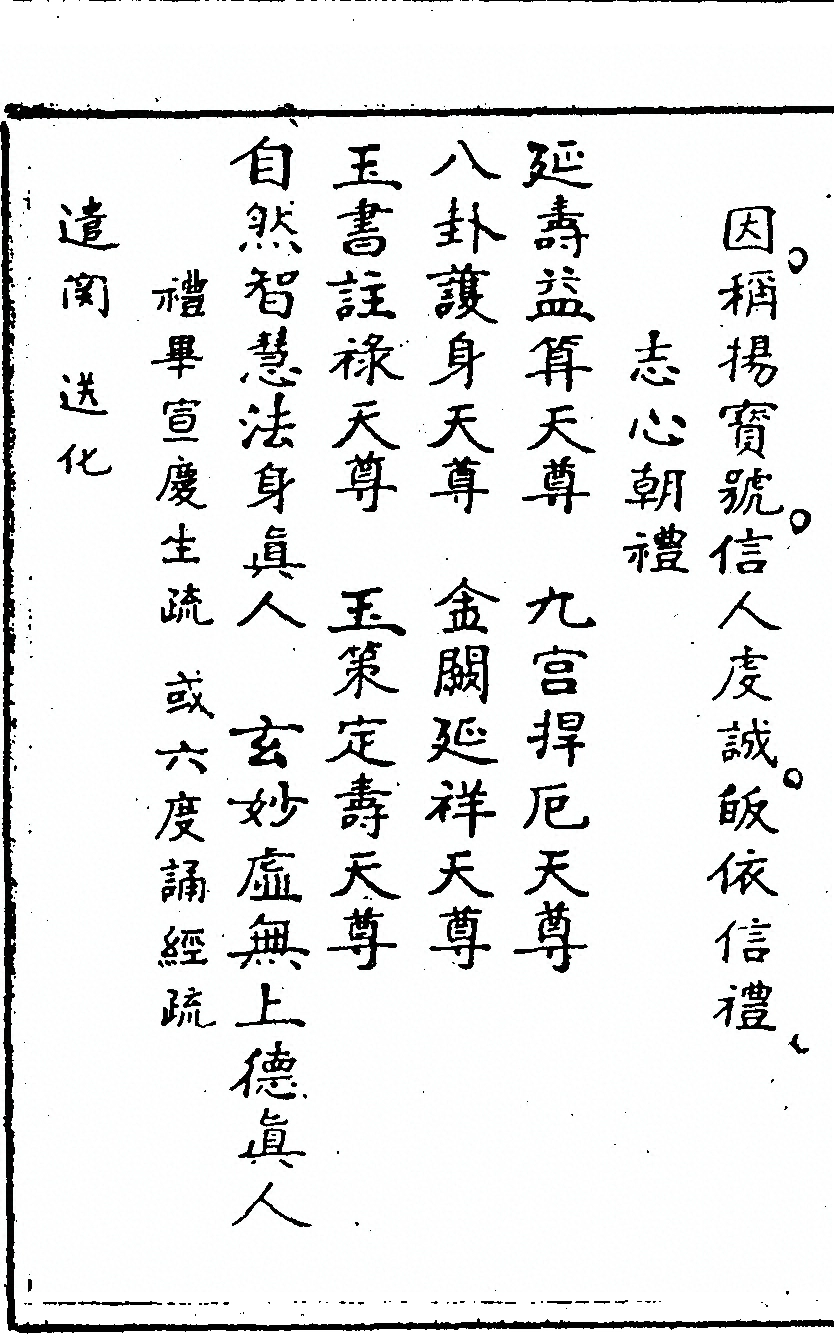 因稱揚寶號信人虔誠皈依信禮
志心朝禮
延壽益算天尊 九宮捍厄天尊
八卦護身天尊 金闕延祥天尊
玉書註祿天尊 玉策定壽天尊
自然智慧法身眞人 玄妙虛無上德眞人
禮畢宣慶生疏 或六度誦經疏
遣関 送化